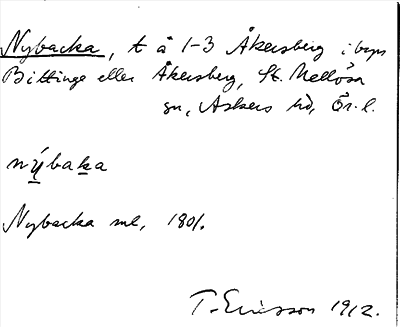 Nybacka, t å 1-3 Åkersberg i byn
Bittinge eller Åkersberg, St. Mellösa
sn, Askers hd, Ör. l.
nýbaka
Nybacka ml, 1801.
T. Ericsson 1912.